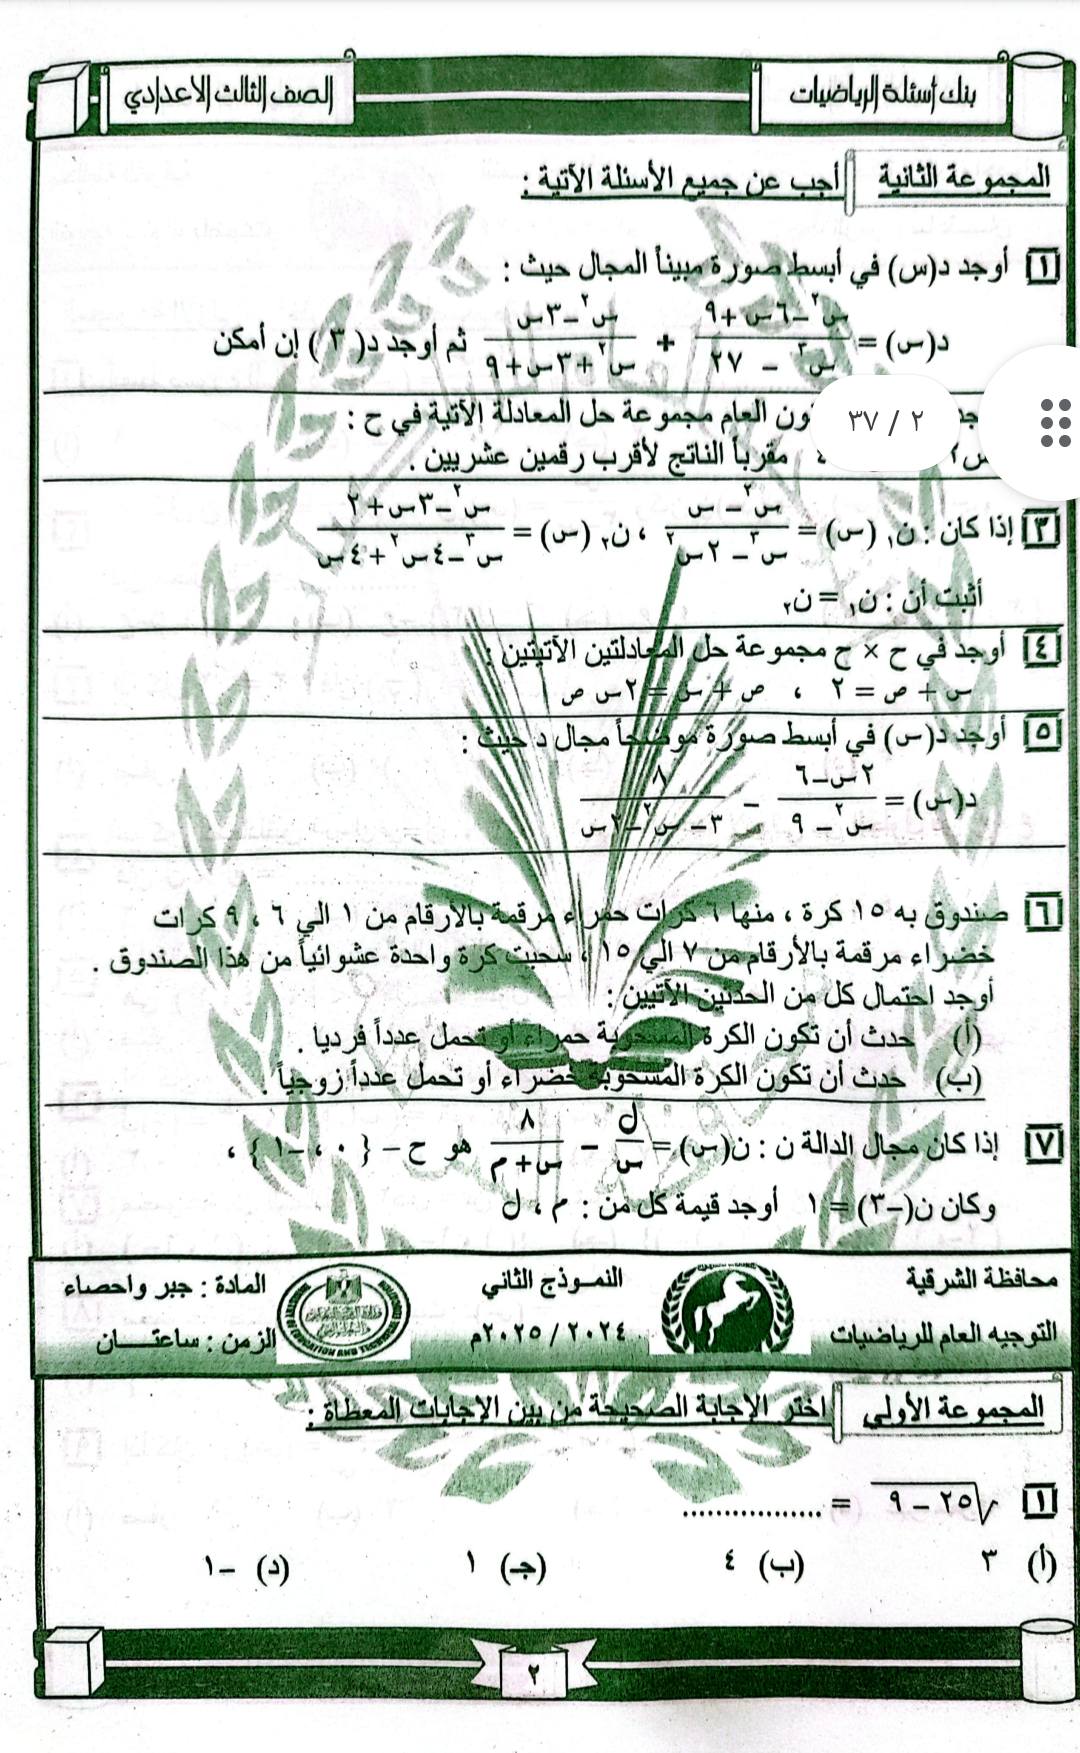 بنك أسئلة الرياضيات
الصف الثالث الاعدادي
المجموعة الثانية أجب عن جميع الأسئلة الآتية :
١ أوجد د(س) في أبسط صورة مبيناً المجال حيث :
د(س) = (س٢ – ٦س + ٩)/(س٣ – ٢٧) + (س٢ – ٣س)/(س٢ + ٣س + ٩) ثم أوجد د(٣) إن أمكن
٢ / ٣٧
العام مجموعة حل المعادلة الآتية في ح :
مقرباً الناتج لأقرب رقمين عشريين .
٣ إذا كان : ن١ (س) = (س٢ – س)/(س٣ – ٢س٢) ، ن٢ (س) = (س٢ – ٣س + ٢)/(س٣ – ٤س٢ + ٤س)
أثبت أن : ن١ = ن٢
٤ أوجد في ح × ح مجموعة حل المعادلتين الآتيتين :
س + ص = ٢ ، ص + س = ٢س ص
٥ أوجد د(س) في أبسط صورة موضحاً مجال د حيث :
د(س) = (٢س – ٦)/(س٢ – ٩) – ٨/(٣ – س٢ – ٢س)
٦ صندوق به ١٥ كرة ، منها ٦ كرات حمراء مرقمة بالأرقام من ١ الي ٦ ، ٩ كرات
خضراء مرقمة بالأرقام من ٧ الي ١٥ ، سحبت كرة واحدة عشوائياً من هذا الصندوق .
أوجد احتمال كل من الحدثين الآتيين :
(أ) حدث أن تكون الكرة المسحوبة حمراء أو تحمل عدداً فرديا .
(ب) حدث أن تكون الكرة المسحوبة خضراء أو تحمل عدداً زوجياً .
٧ إذا كان مجال الدالة ن : ن(س) = ل/س – ٨/(س + م) هو ح – { ٠ ، –١ } ،
وكان ن(–٣) = ١ أوجد قيمة كل من : م ، ل
محافظة الشرقية
النموذج الثاني
المادة : جبر واحصاء
التوجيه العام للرياضيات
٢٠٢٤ / ٢٠٢٥م
الزمن : ساعتان
المجموعة الأولي اختر الإجابة الصحيحة من بين الإجابات المعطاة :
١ √(٢٥ – ٩) = ................
(أ) ٣ (ب) ٤ (جـ) ١ (د) –١
٢